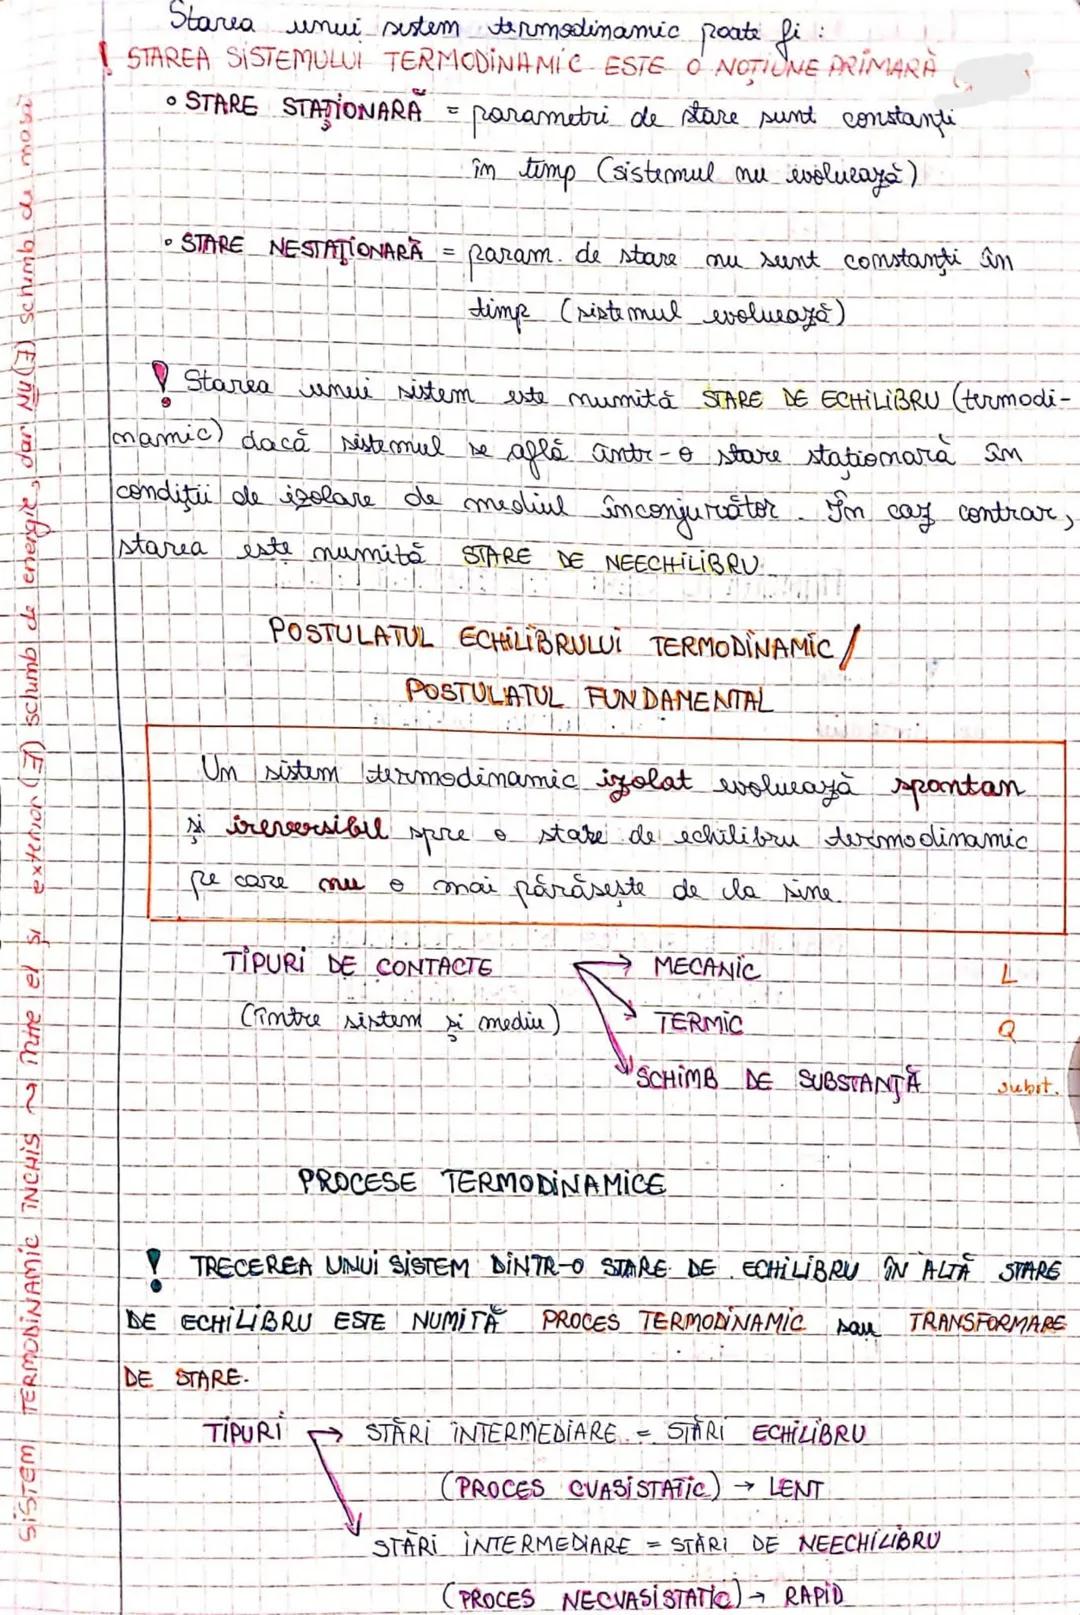 Starea unui sistem termodinamic poate fi :
! STAREA SISTEMULUI TERMODINAMIC ESTE O NOȚIUNE PRIMARĂ
• STARE STAȚIONARĂ = parametri de stare sunt constanți
în timp (sistemul nu evoluează)
• STARE NESTAȚIONARĂ = param. de stare nu sunt constanți în
timp (sistemul evoluează)
! Starea unui sistem este numită STARE DE ECHILIBRU (termodi-
namic) dacă sistemul se află într-o stare staționară în
condiții de izolare de mediul înconjurător. În caz contrar,
starea este numită STARE DE NEECHILIBRU
POSTULATUL ECHILIBRULUI TERMODINAMIC /
POSTULATUL FUNDAMENTAL
Un sistem termodinamic izolat evoluează spontan
și ireversibil spre o stare de echilibru termodinamic
pe care nu o mai părăsește de la sine.
TIPURI DE CONTACTE → MECANIC L
(între sistem și mediu) TERMIC Q
SCHIMB DE SUBSTANȚĂ subst.
PROCESE TERMODINAMICE
! TRECEREA UNUI SISTEM DINTR-O STARE DE ECHILIBRU ÎN ALTĂ STARE
DE ECHILIBRU ESTE NUMITĂ PROCES TERMODINAMIC sau TRANSFORMARE
DE STARE.
TIPURI → STĂRI INTERMEDIARE = STĂRI ECHILIBRU
(PROCES CVASISTATIC) → LENT
STĂRI INTERMEDIARE = STĂRI DE NEECHILIBRU
(PROCES NECVASISTATIC) → RAPID
SISTEM TERMODINAMIC ÎNCHIS ~ între el și exterior (∃) schimb de energie, dar NU (∃) schimb de masă